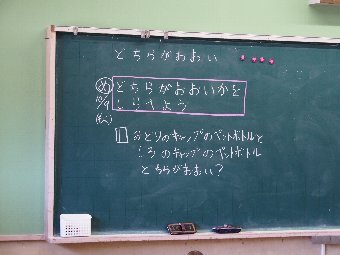 どちらがおおい
め どちらがおおいかを
しらべよう
10/9
(もく)
1 みどりのキャップのペットボトルと
しろのキャップのペットボトル
どちらがおおい?